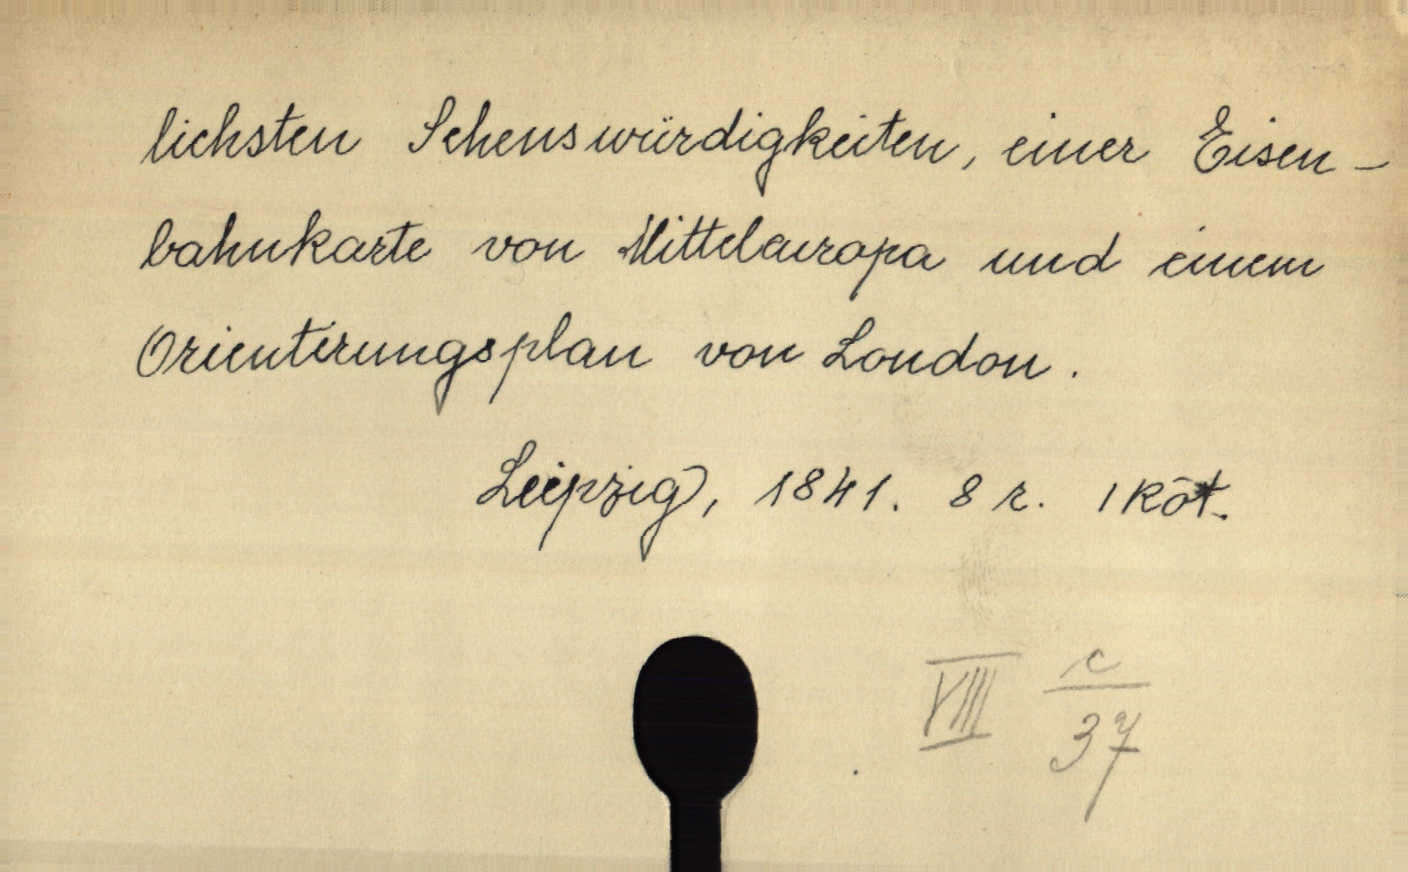 lichsten Sehenswürdigkeiten, einer Eisen-
bahnkarte von Mitteleuropa und einem
Orientirungsplan von London.
Leipzig, 1841. 8 r. 1 köt.
VIII c/37